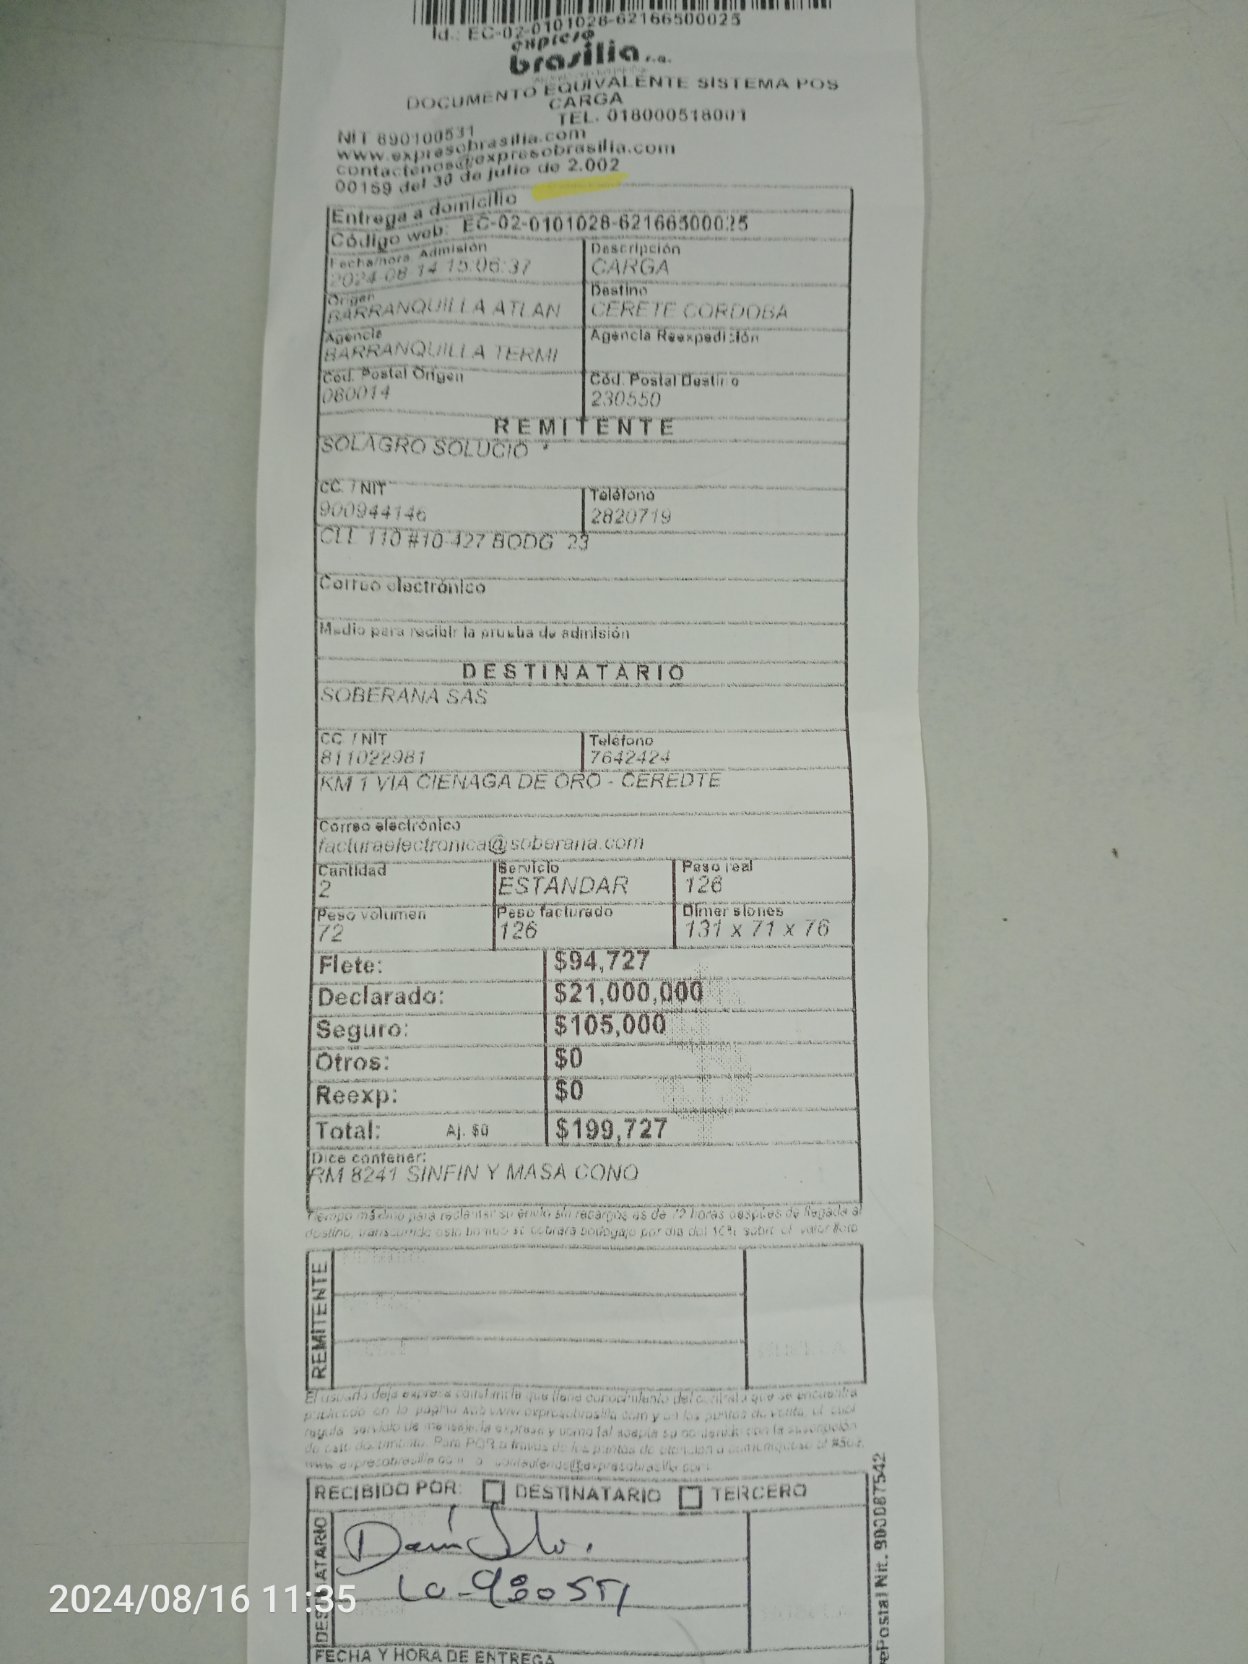 Id.: EC-02-0101028-62166500025
expreso
brasilia s.a.
DOCUMENTO EQUIVALENTE SISTEMA POS
CARGA
TEL. 018000518001
NIT 890100531
www.expresobrasilia.com
contactenos@expresobrasilia.com
00159 del 30 de julio de 2.002
Entrega a domicilio
Código web: EC-02-0101028-62166500025
Fecha/hora Admisión Descripción
2024-08-14 15:06:37 CARGA
Origen Destino
BARRANQUILLA ATLAN CERETE CORDOBA
Agencia Agencia Reexpedición
BARRANQUILLA TERMI
Cód. Postal Origen Cód. Postal Destino
080014 230550
REMITENTE
SOLAGRO SOLUCIO *
CC. / NIT Teléfono
900944146 2820719
CLL 110 #10-427 BODG 23
Correo electrónico
Medio para recibir la prueba de admisión
DESTINATARIO
SOBERANA SAS
CC / NIT Teléfono
811022981 7642424
KM 1 VIA CIENAGA DE ORO - CEREDTE
Correo electrónico
facturaelectronica@soberana.com
Cantidad Servicio Peso real
2 ESTANDAR 126
Peso volumen Peso facturado Dimensiones
72 126 131 x 71 x 76
Flete: $94,727
Declarado: $21,000,000
Seguro: $105,000
Otros: $0
Reexp: $0
Total: Aj. $0 $199,727
Dice contener:
RM 8241 SINFIN Y MASA CONO
Tiempo máximo para reclamar su envío sin recargos es de 72 horas después de llegada a
destino, transcurrido este tiempo se cobrará bodegaje por día del 10% sobre el valor flete
REMITENTE
El usuario deja expresa constancia que tiene conocimiento del contrato que se encuentra
publicado en la página web www.expresobrasilia.com y en los puntos de venta, el cual
regula servicio de mensajería expresa y como tal acepta su contenido con la suscripción
de este documento. Para PQR a través de los puntos de atención o comuníquese al
www.expresobrasilia.com o contactenos@expresobrasilia.com
RECIBIDO POR: DESTINATARIO TERCERO
DESTINATARIO
FECHA Y HORA DE ENTREGA
ePostal Nit. 900087542
2024/08/16 11:35